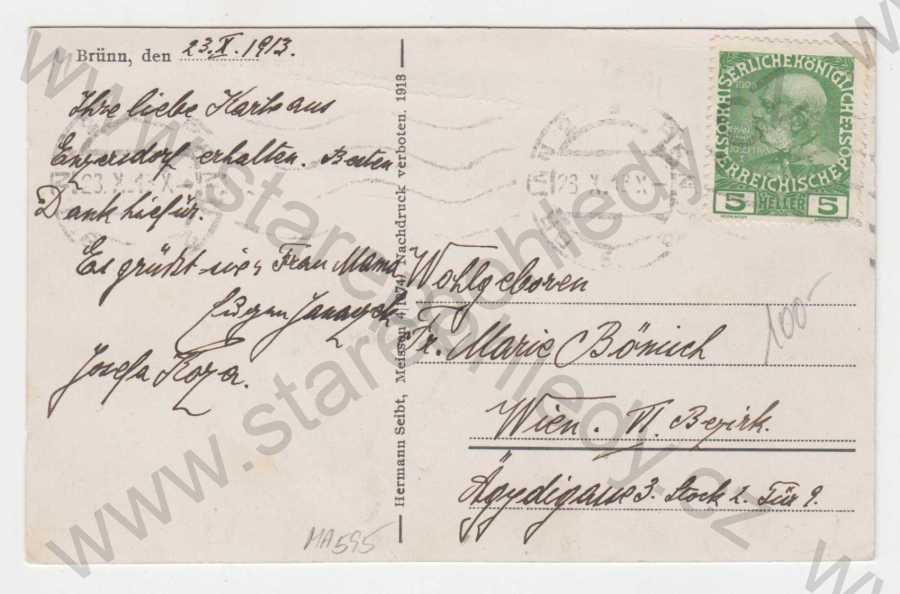 Brünn, den 23.X.1913.
Ihre liebe Karte aus
Enzersdorf erhalten. Besten
Dank hiefür.
Es grüßt Sie u. Frau Mama
Eugen Janaček
Josefa Koza.
Hermann Seibt, Meissen 4(1674) Nachdruck verboten. 1913
KAISERLICHEKÖNIGLICHE
ÖSTERREICHISCHEPOST
5 HELLER 5
Wohlgeboren
Fr. Marie Bömisch
Wien. VI. Bezirk.
Ägydigasse 3. Stock 2. Tür 9.
100-
MA595
www.starepohledy.cz